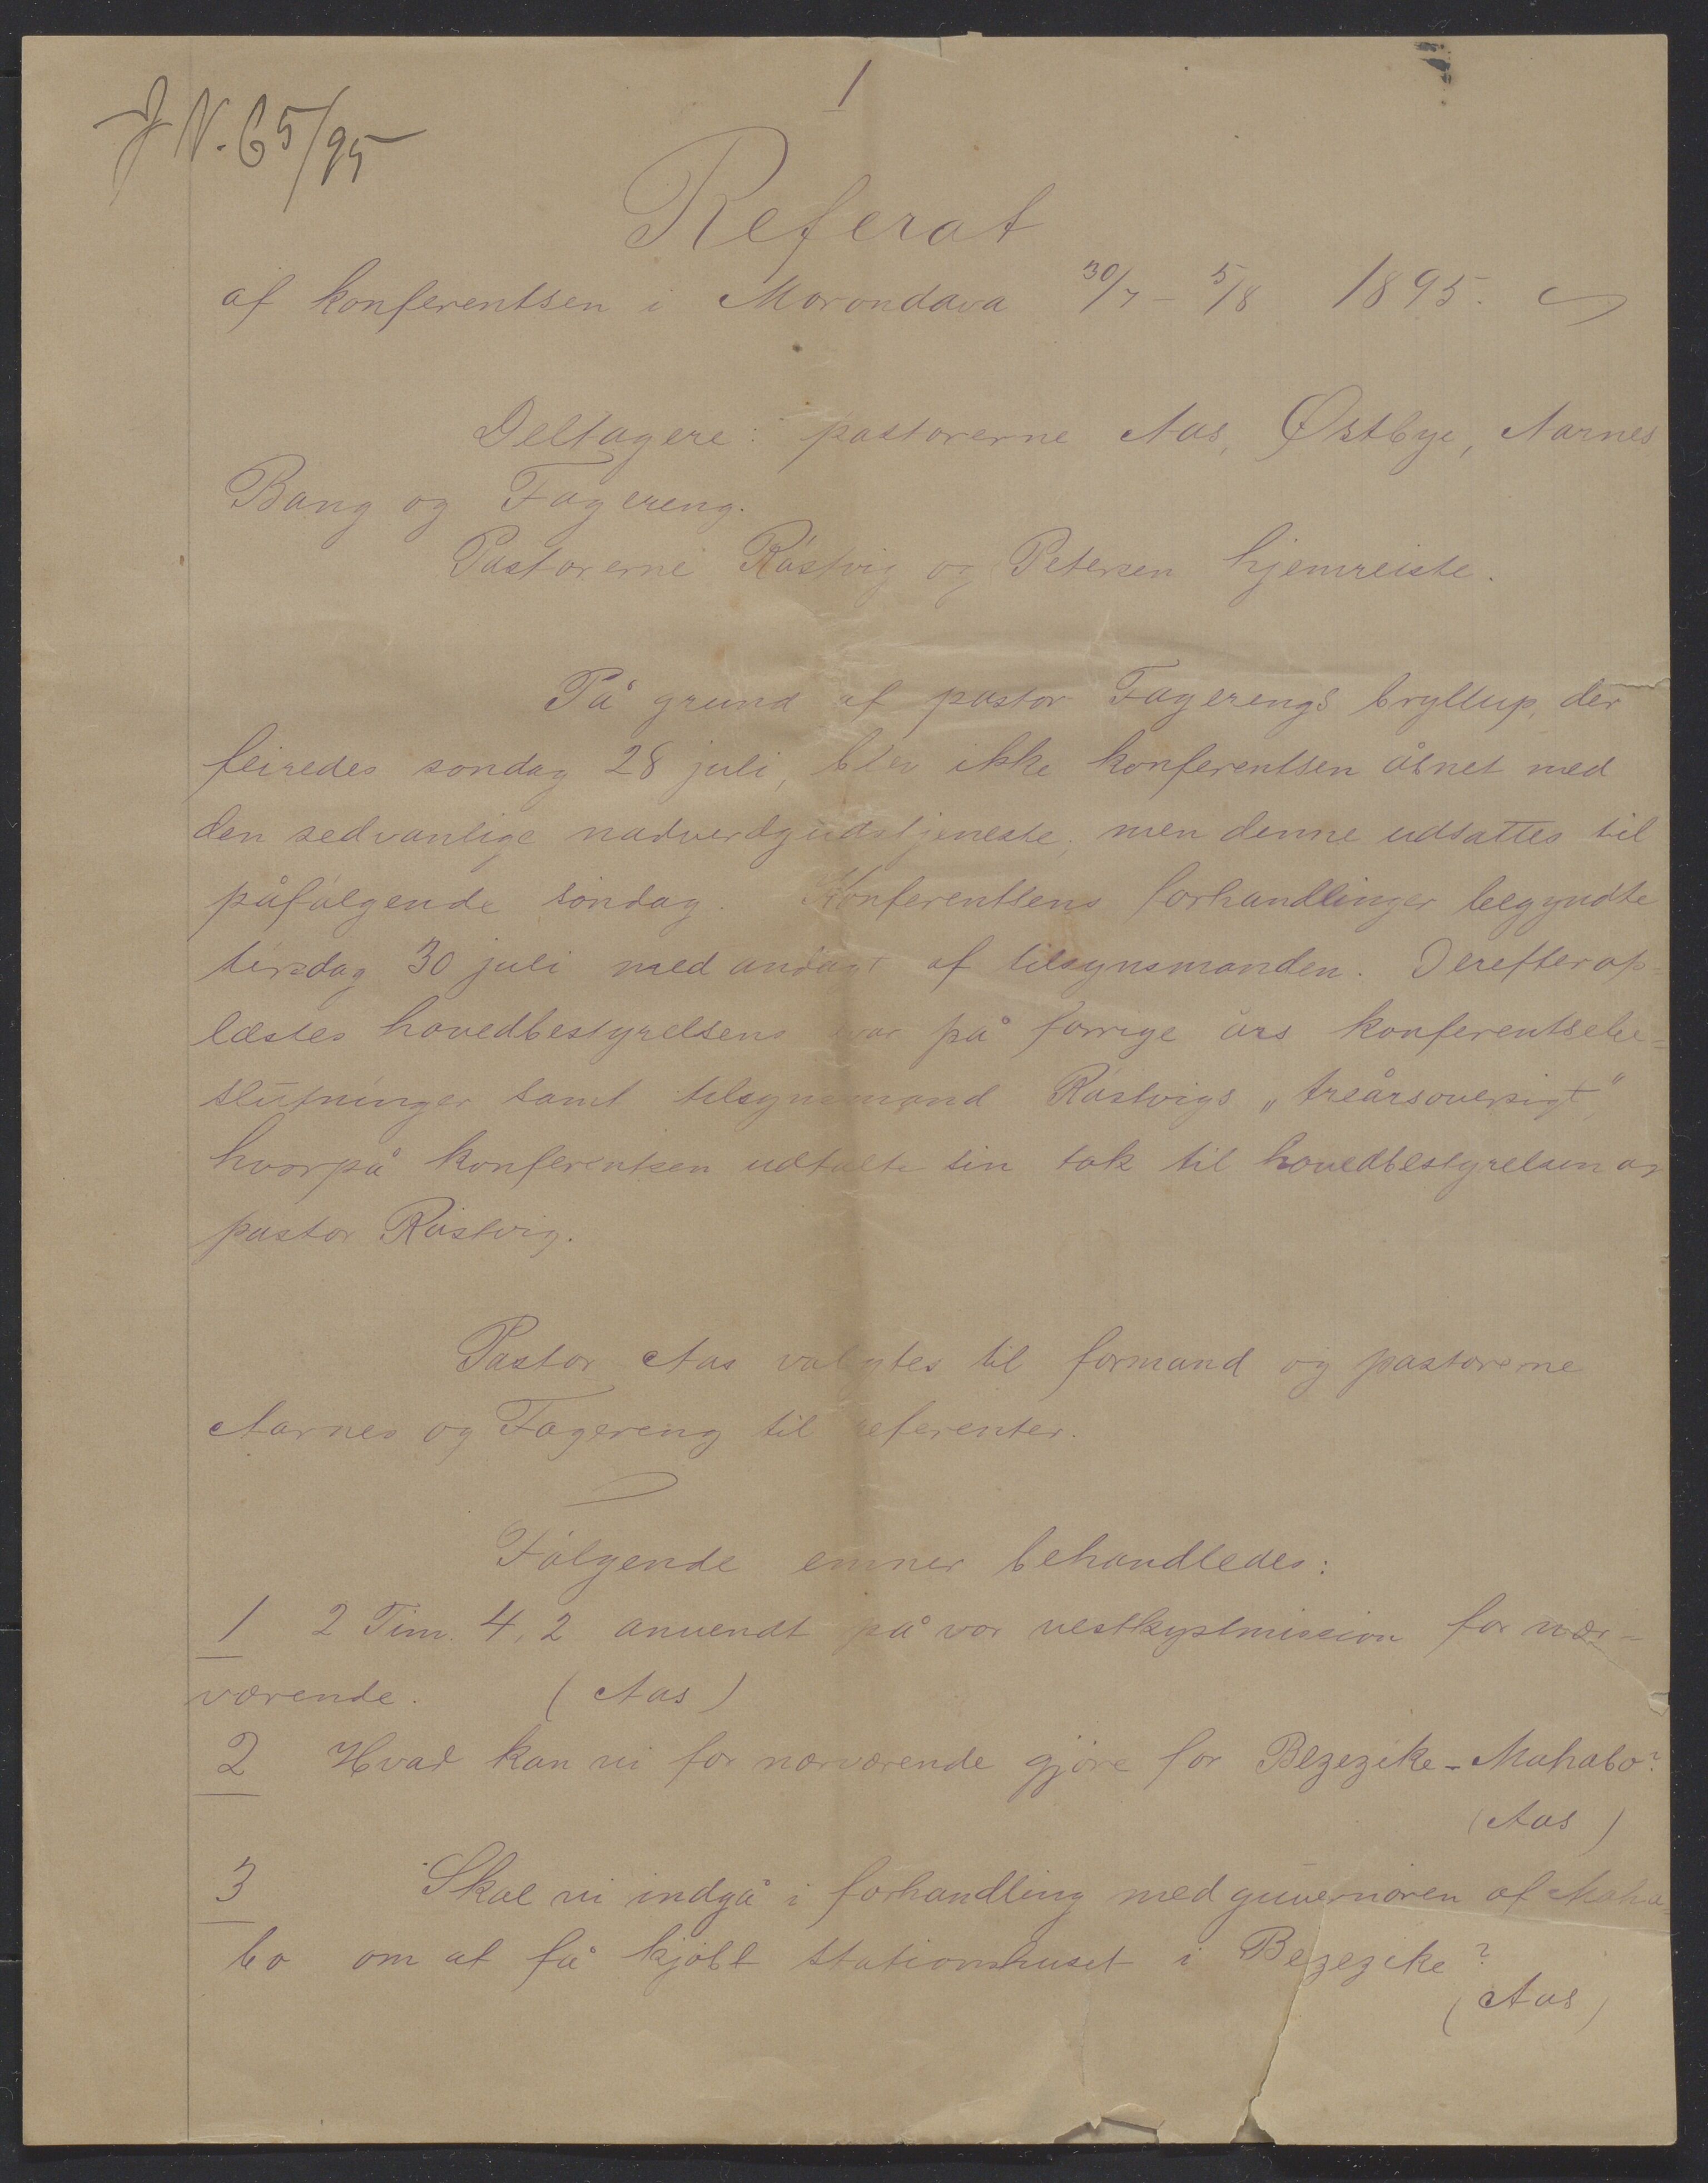 J N. 65/95
1
Referat
af konferentsen i Morondava 30/7 - 5/8 1895.
Deltagere: pastorerne Aas, Østbye, Aarnes
Bang og Fagereng.
Pastorerne Röstvig og Petersen hjemreiste.
På grund af pastor Fagerengs bryllup, der
feiredes söndag 28 juli, blev ikke konferentsen åbnet med
den sedvanlige nadverdgudstjeneste, men denne udsattes til
påfölgende söndag. Konferentsens forhandlinger begyndte
tirsdag 30 juli med andagt af tilsynsmanden. Derefter op=
læstes hovedbestyrelsens svar på forrige års konferentsebe=
slutninger samt tilsynsmand Röstvigs „treårsoversigt",
hvorpå konferentsen udtalte sin tak til hovedbestyrelsen og
pastor Röstvig.
Pastor Aas valgtes til formand og pastorerne
Aarnes og Fagereng til referenter.
Fölgende emner behandledes:
1 2 Tim. 4, 2 anvendt på vor vestkystmission for nær=
værende. (Aas)
2 Hvad kan vi for nærværende gjöre for Bezezike-Mahabo?
(Aas)
3 Skal vi indgå i forhandling med guvernören af Maha=
bo om at få kjöbt stationshuset i Bezezike?
(Aas)